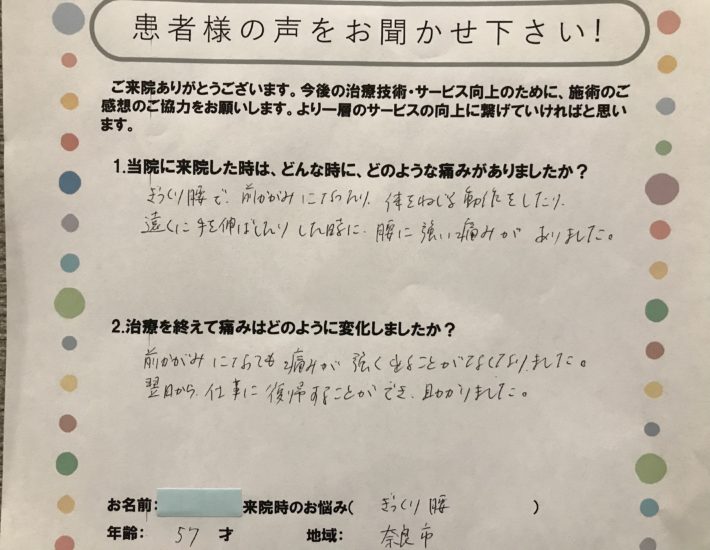 患者様の声をお聞かせ下さい!
ご来院ありがとうございます。今後の治療技術・サービス向上のために、施術のご
感想のご協力をお願いします。より一層のサービスの向上に繋げていければと思い
ます。
1.当院に来院した時は、どんな時に、どのような痛みがありましたか？
ぎっくり腰で、前かがみになったり、体をねじる動作をしたり、
遠くに手を伸ばしたりした時に、腰に強い痛みがありました。
2.治療を終えて痛みはどのように変化しましたか？
前かがみになっても痛みが強く出ることがなくなりました。
翌日から、仕事に復帰することができ、助かりました。
お名前: 来院時のお悩み( ぎっくり腰 )
年齢: 57 才 地域: 奈良市